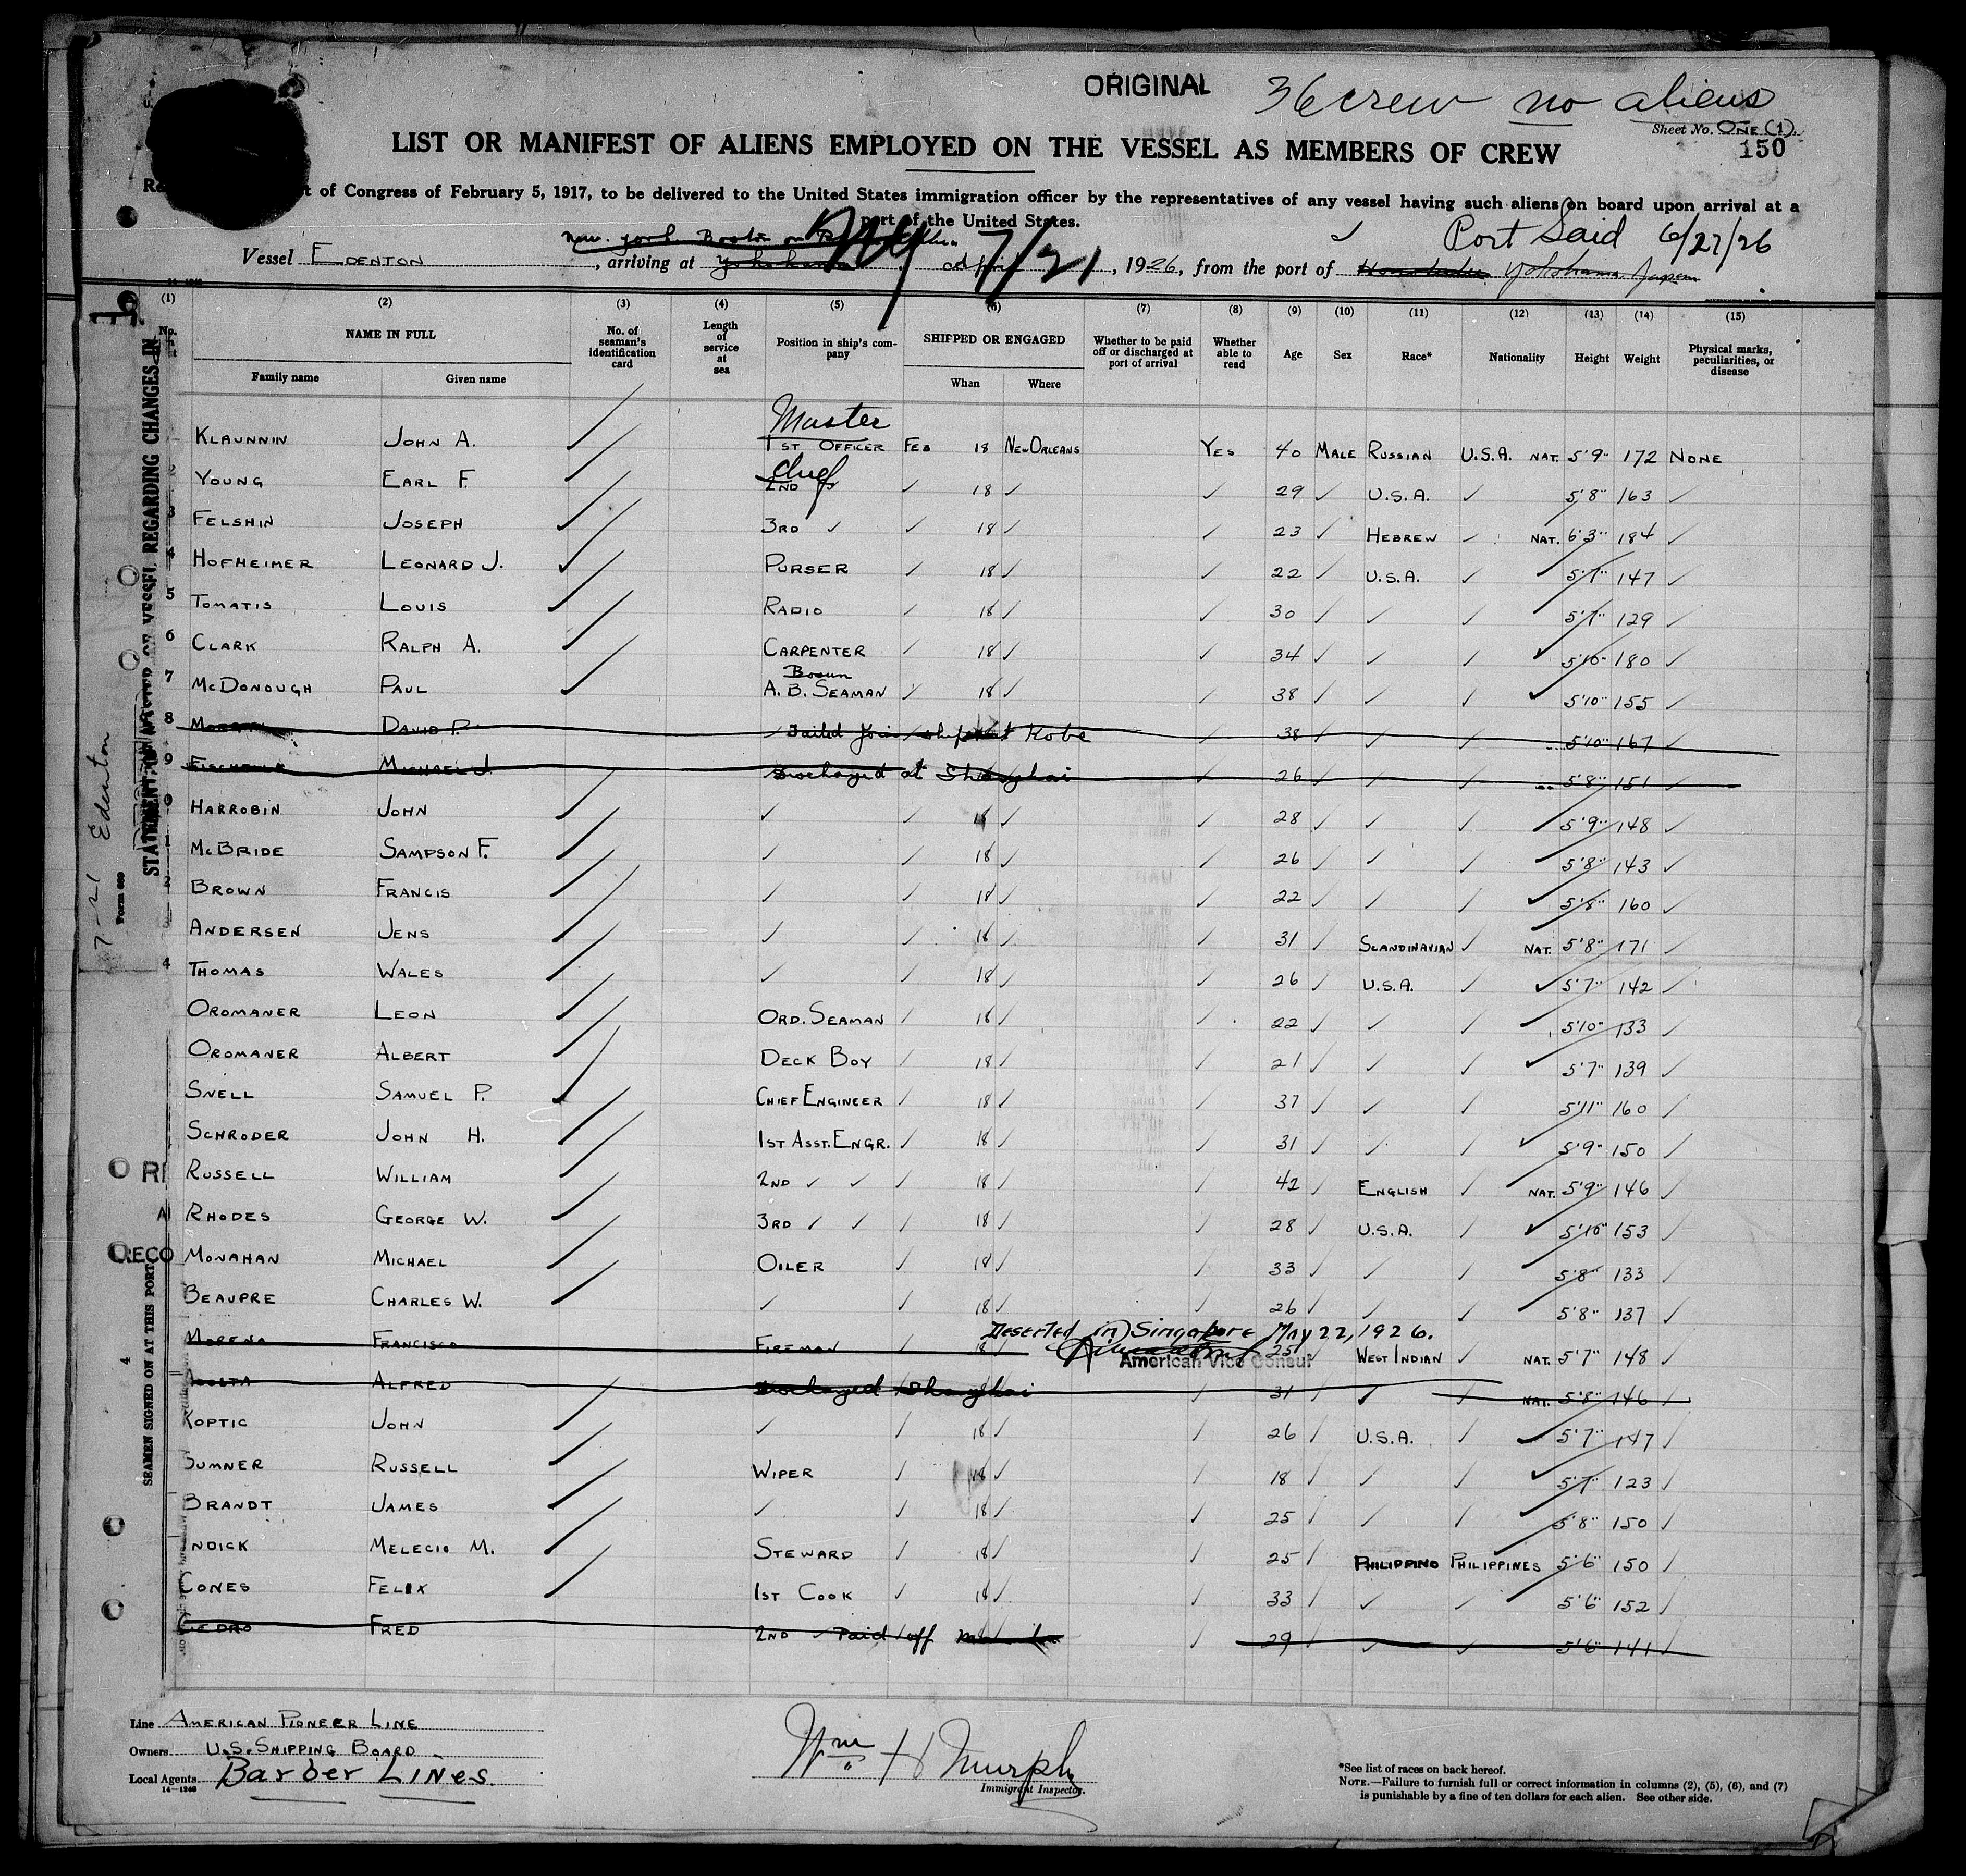 ORIGINAL 36 crew no aliens
Sheet No. ONE (1).
150
LIST OR MANIFEST OF ALIENS EMPLOYED ON THE VESSEL AS MEMBERS OF CREW
t of Congress of February 5, 1917, to be delivered to the United States immigration officer by the representatives of any vessel having such aliens on board upon arrival at a
port of the United States.
New York Boston or
NY 7/21
Port Said 6/27/26
Vessel EDENTON, arriving at Yokohama, 1926, from the port of Honolulu Yokohama Japan
(1) (2) (3) (4) (5) (6) (7) (8) (9) (10) (11) (12) (13) (14) (15)
No. NAME IN FULL Family name Given name
No. of seaman's identification card
Length of service at sea
Position in ship's company
SHIPPED OR ENGAGED When Where
Whether to be paid off or discharged at port of arrival
Whether able to read
Age Sex Race* Nationality Height Weight
Physical marks, peculiarities, or disease
Master
KLAUNNIN JOHN A. ✓ 1ST OFFICER FEB 18 NEW ORLEANS YES 40 MALE RUSSIAN U.S.A. NAT. 5'9" 172 NONE
Chief
2 YOUNG EARL F. ✓ 2ND ✓ 18 ✓ ✓ 29 ✓ U.S.A. ✓ 5'8" 163 ✓
3 FELSHIN JOSEPH ✓ 3RD ✓ ✓ 18 ✓ ✓ 23 ✓ HEBREW ✓ NAT. 6'3" 184 ✓
4 HOFHEIMER LEONARD J. ✓ PURSER ✓ 18 ✓ ✓ 22 ✓ U.S.A. ✓ 5'7" 147 ✓
5 TOMATIS LOUIS ✓ RADIO ✓ 18 ✓ ✓ 30 ✓ ✓ ✓ 5'7" 129 ✓
6 CLARK RALPH A. ✓ CARPENTER ✓ 18 ✓ ✓ 34 ✓ ✓ ✓ 5'10" 180 ✓
Bosun
7 MCDONOUGH PAUL ✓ A. B. SEAMAN ✓ 18 ✓ ✓ 38 ✓ ✓ ✓ 5'10" 155 ✓
8 DAVID P. ✓ Failed join ship at Kobe ✓ 38 ✓ ✓ ✓ 5'10" 167 ✓
9 MICHAEL J. Discharged at Shanghai ✓ 26 ✓ ✓ ✓ 5'8" 151 ✓
0 HARROBIN JOHN ✓ ✓ ✓ 18 ✓ ✓ 28 ✓ ✓ ✓ 5'9" 148 ✓
1 MCBRIDE SAMPSON F. ✓ ✓ ✓ 18 ✓ ✓ 26 ✓ ✓ ✓ 5'8" 143 ✓
2 BROWN FRANCIS ✓ ✓ ✓ 18 ✓ ✓ 22 ✓ ✓ ✓ 5'8" 160 ✓
3 ANDERSEN JENS ✓ ✓ ✓ 18 ✓ ✓ 31 ✓ SCANDINAVIAN ✓ NAT. 5'8" 171 ✓
4 THOMAS WALES ✓ ✓ ✓ 18 ✓ ✓ 26 ✓ U.S.A. ✓ 5'7" 142 ✓
OROMANER LEON ✓ ORD. SEAMAN ✓ 18 ✓ ✓ 22 ✓ ✓ ✓ 5'10" 133 ✓
OROMANER ALBERT ✓ DECK BOY ✓ 18 ✓ ✓ 21 ✓ ✓ ✓ 5'7" 139 ✓
SNELL SAMUEL P. ✓ CHIEF ENGINEER ✓ 18 ✓ ✓ 37 ✓ ✓ ✓ 5'11" 160 ✓
SCHRODER JOHN H. ✓ 1ST ASST. ENGR. ✓ 18 ✓ ✓ 31 ✓ ✓ ✓ 5'9" 150 ✓
RUSSELL WILLIAM ✓ 2ND ✓ ✓ ✓ 18 ✓ ✓ 42 ✓ ENGLISH ✓ NAT. 5'9" 146 ✓
RHODES GEORGE W. ✓ 3RD ✓ ✓ ✓ 18 ✓ ✓ 28 ✓ U.S.A. ✓ 5'10" 153 ✓
MONAHAN MICHAEL ✓ OILER ✓ 18 ✓ ✓ 33 ✓ ✓ ✓ 5'8" 133 ✓
BEAUPRE CHARLES W. ✓ ✓ ✓ 18 ✓ ✓ 26 ✓ ✓ ✓ 5'8" 137 ✓
Deserted in Singapore May 22, 1926.
MORENO FRANCISCO FIREMAN 18 ✓ 25 ✓ WEST INDIAN ✓ NAT. 5'7" 148 ✓
American Vice Consul
ACOSTA ALFRED Discharged Shanghai ✓ 31 ✓ ✓ ✓ NAT. 5'8" 146 ✓
KOPTIC JOHN ✓ ✓ ✓ 18 ✓ ✓ 26 ✓ U.S.A. ✓ 5'7" 147 ✓
SUMNER RUSSELL ✓ WIPER ✓ 18 ✓ ✓ 18 ✓ ✓ ✓ 5'7" 123 ✓
BRANDT JAMES ✓ ✓ ✓ 18 ✓ ✓ 25 ✓ ✓ ✓ 5'8" 150 ✓
NDICK MELECIO M. ✓ STEWARD ✓ 18 ✓ ✓ 25 ✓ PHILIPPINO PHILIPPINES 5'6" 150 ✓
CONES FELIX ✓ 1ST COOK ✓ 18 ✓ ✓ 33 ✓ ✓ ✓ 5'6" 152 ✓
CEDRO FRED 2ND ✓ Paid off ✓ 29 ✓ ✓ ✓ 5'6" 141 ✓
STATEMENT OF MASTER OF VESSEL REGARDING CHANGES IN
7-21 Edenton
Form 689
RI
A
RECO
SEAMEN SIGNED ON AT THIS PORT
4
Line AMERICAN PIONEER LINE
Owners U.S. SHIPPING BOARD
Local Agents Barber Lines
14-1240
Wm H Murphy
Immigrant Inspector.
*See list of races on back hereof.
NOTE.—Failure to furnish full or correct information in columns (2), (5), (6), and (7)
is punishable by a fine of ten dollars for each alien. See other side.